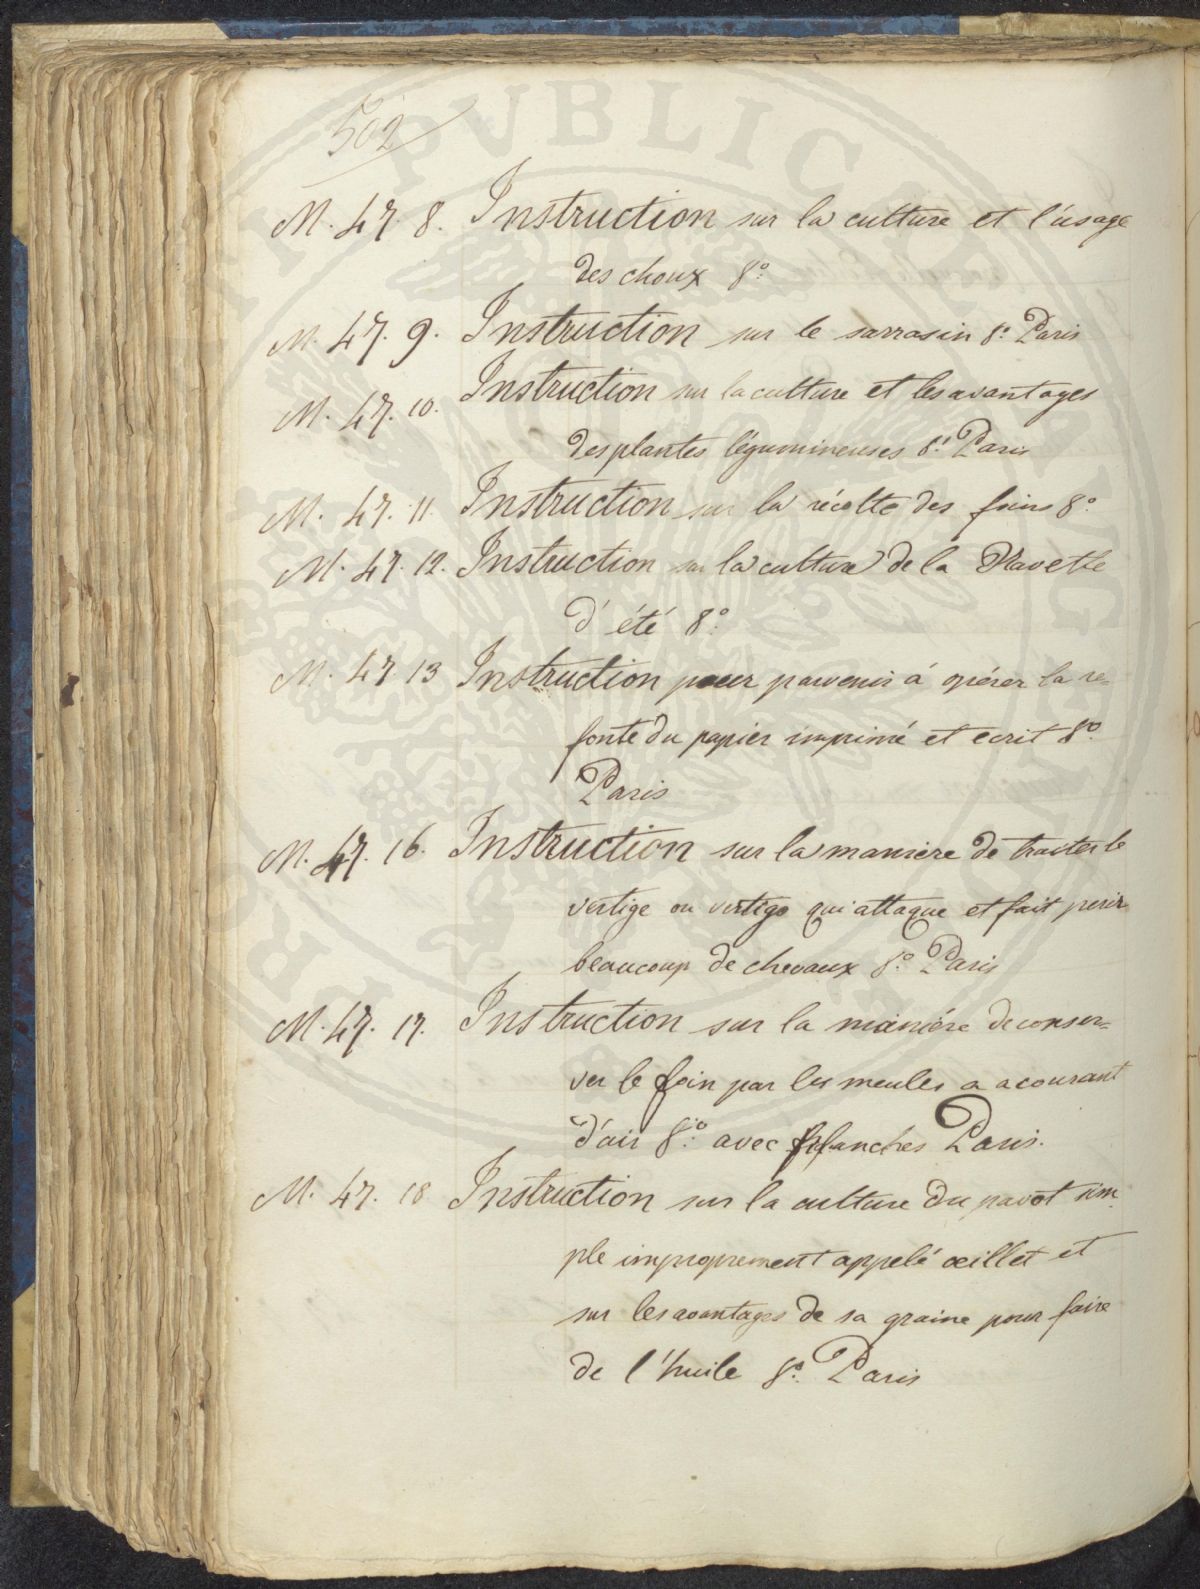 502
M. 47. 8. Instruction sur la culture et l'usage
des choux 8º.
M. 47. 9. Instruction sur le sarrasin 8º. Paris
M. 47. 10. Instruction sur la culture et les avantages
des plantes légumineuses 8º. Paris
M. 47. 11. Instruction sur la récolte des foins 8º.
M. 47. 12. Instruction sur la culture de la Navette
d'été 8º.
M. 47 13 Instruction pour parvenir á opérer la re=
fonte du papier imprimé et ecrit 8º.
Paris
M. 47. 16. Instruction sur la maniere de traiter le
vertige ou vertigo qui attaque et fait perir
beaucoup de chevaux 8º. Paris
M. 47. 17. Instruction sur la maniére de conser=
ver le foin par les meules a acourant
d'air 8º. avec planches Paris.
M. 47. 18 Instruction sur la culture du pavot sim
ple improprement appelé œillet et
sur les avantages de sa graine pour faire
de l'huile 8º. Paris